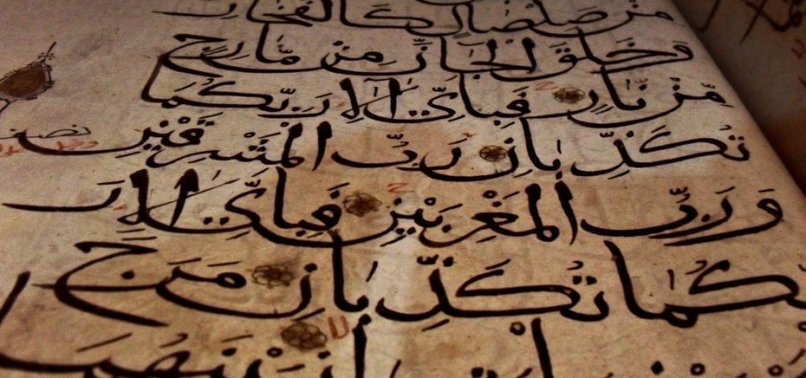 مِنْ صَلْصَالٍ كَالْفَخَّارِ
وَخَلَقَ الْجَانَّ مِنْ مَّارِجٍ
مِّنْ نَّارٍ فَبِأَيِّ آلَاءِ رَبِّكُمَا
تُكَذِّبَانِ رَبُّ الْمَشْرِقَيْنِ
نصف
وَرَبُّ الْمَغْرِبَيْنِ فَبِأَيِّ آلَاءِ رَ
بِّكُمَا تُكَذِّبَانِ مَرَجَ